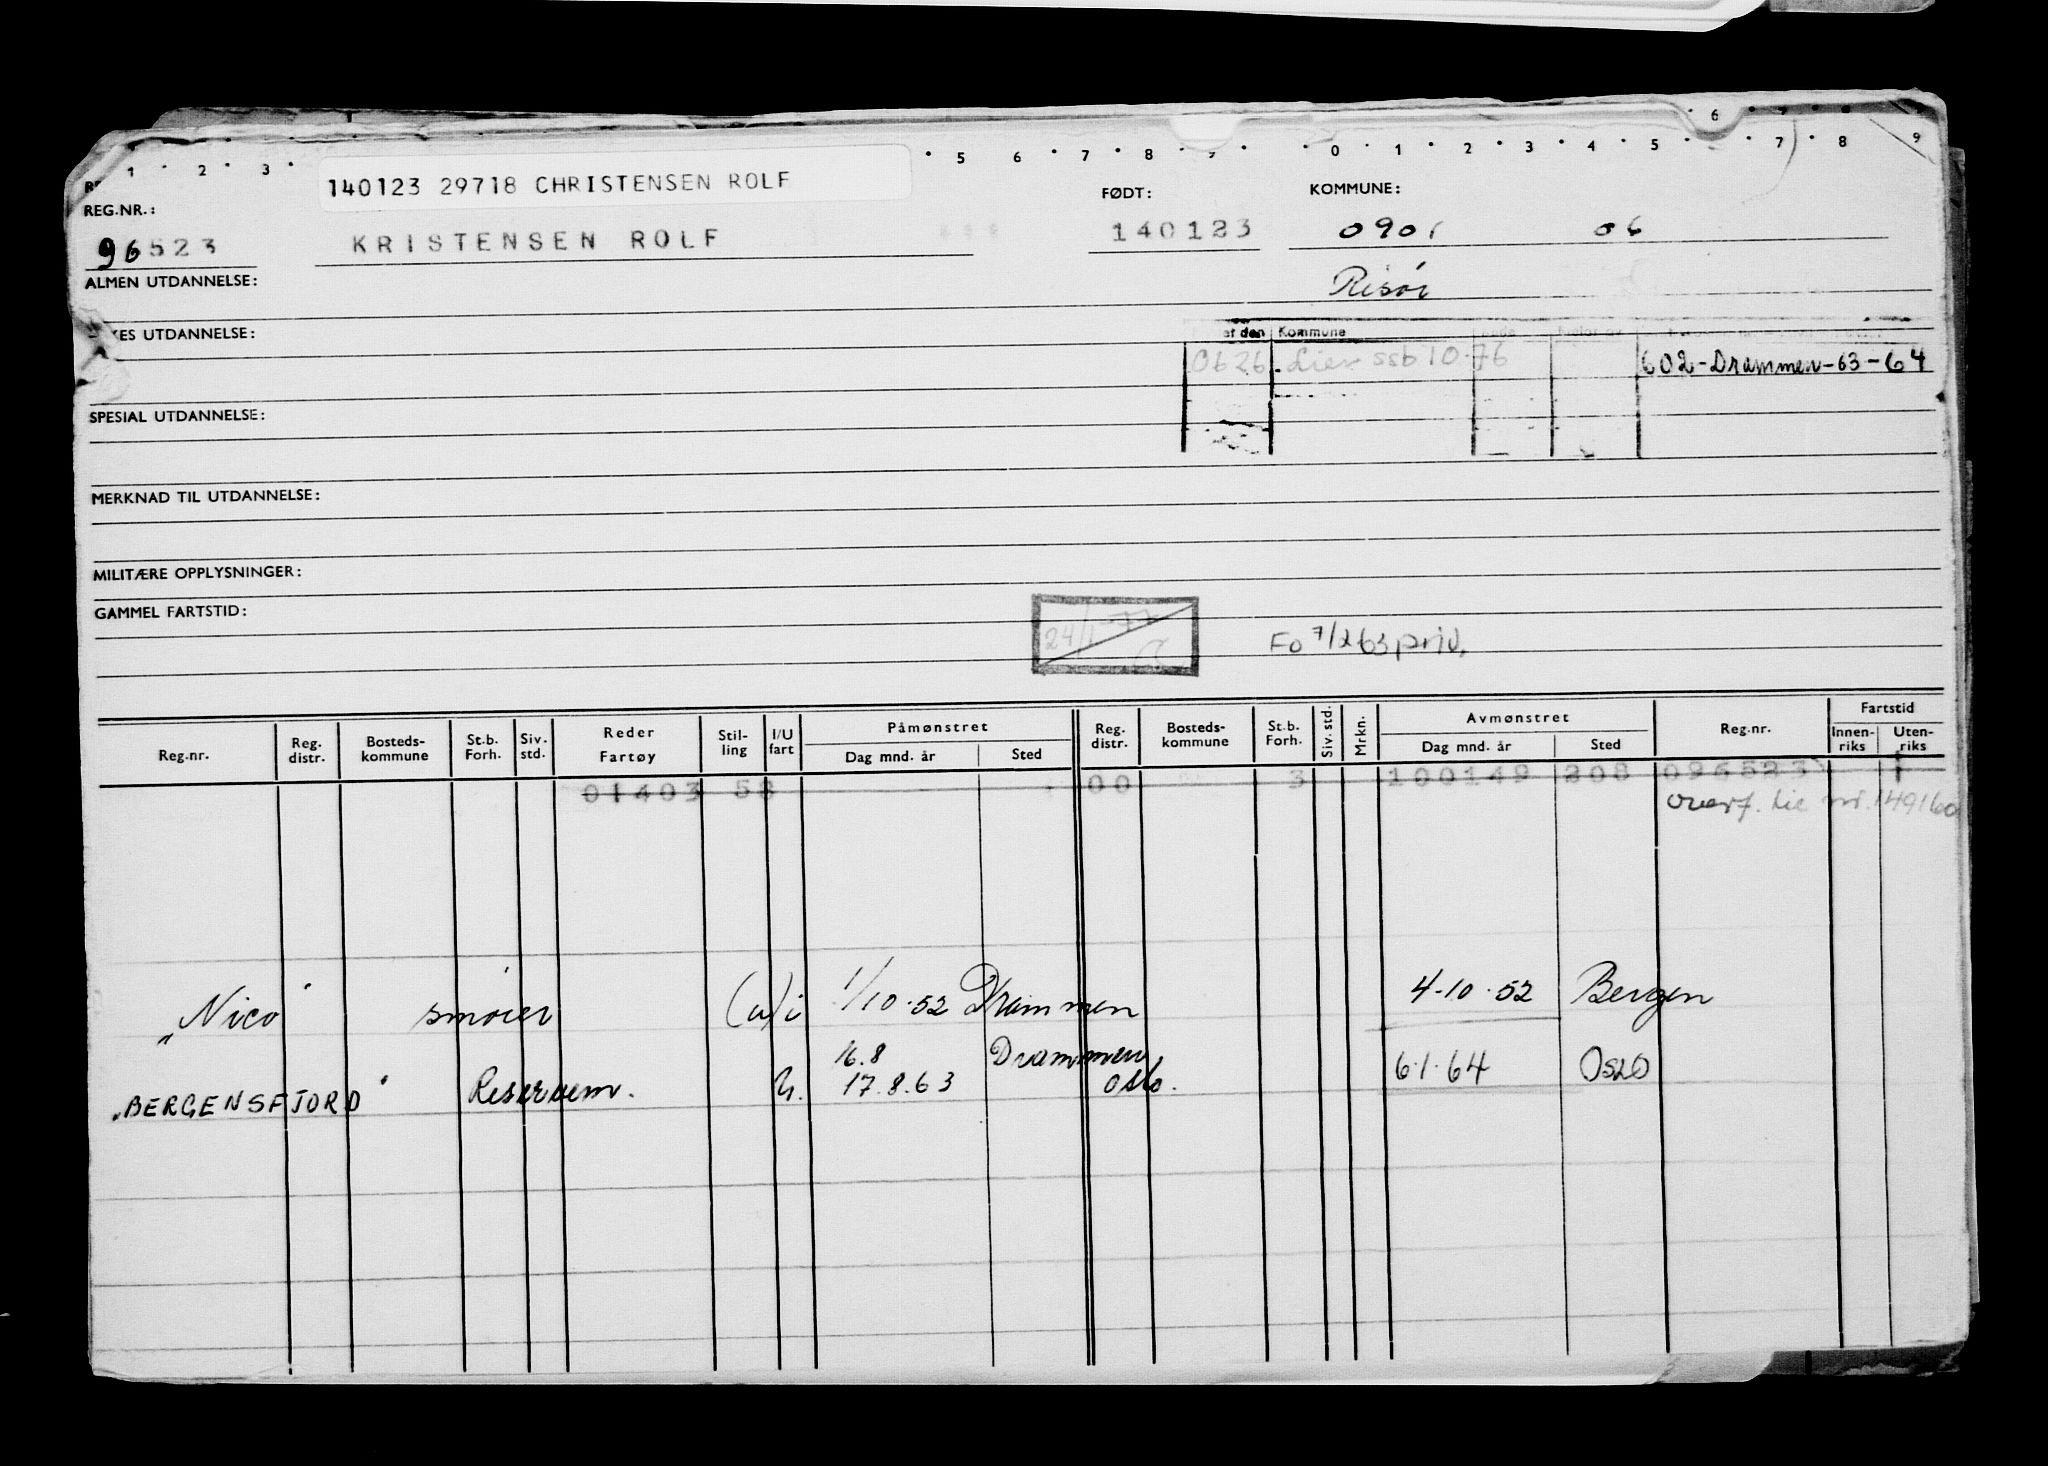 1 · 2 · 3 · · 5 6 · 7 · 8 · 9 · · 0 · 1 · 2 · 3 · 4 · 5 6 7 8 9
140123 29718 CHRISTENSEN ROLF
REG.NR.: FØDT: KOMMUNE:
96523 KRISTENSEN ROLF 140123 0901 06
ALMEN UTDANNELSE: Risør
KES UTDANNELSE: et den Kommune
0626 Lier ssb 10-76 602-Drammen-63-64
SPESIAL UTDANNELSE:
MERKNAD TIL UTDANNELSE:
MILITÆRE OPPLYSNINGER:
GAMMEL FARTSTID:
24/1-77 Fo 7/2 63 priv.
Reg.nr. Reg. distr. Bosteds-kommune St.b. Forh. Siv. std. Reder Fartøy Stil-ling I/U fart Påmønstret Dag mnd. år Sted Reg. distr. Bosteds-kommune St.b. Forh. Siv. std. Mrkn. Avmønstret Dag mnd. år Sted Reg.nr. Fartstid Innen-riks Uten-riks
01403 53 00 3 100149 208 096523 1
overf. til nr. 149160
„Nico" smører (u)i 1/10.52 Drammen 4-10.52 Bergen
16.8 Drammen
„BERGENSFJORD" Reservem. U. 17.8.63 Oslo. 6.1.64 OSLO